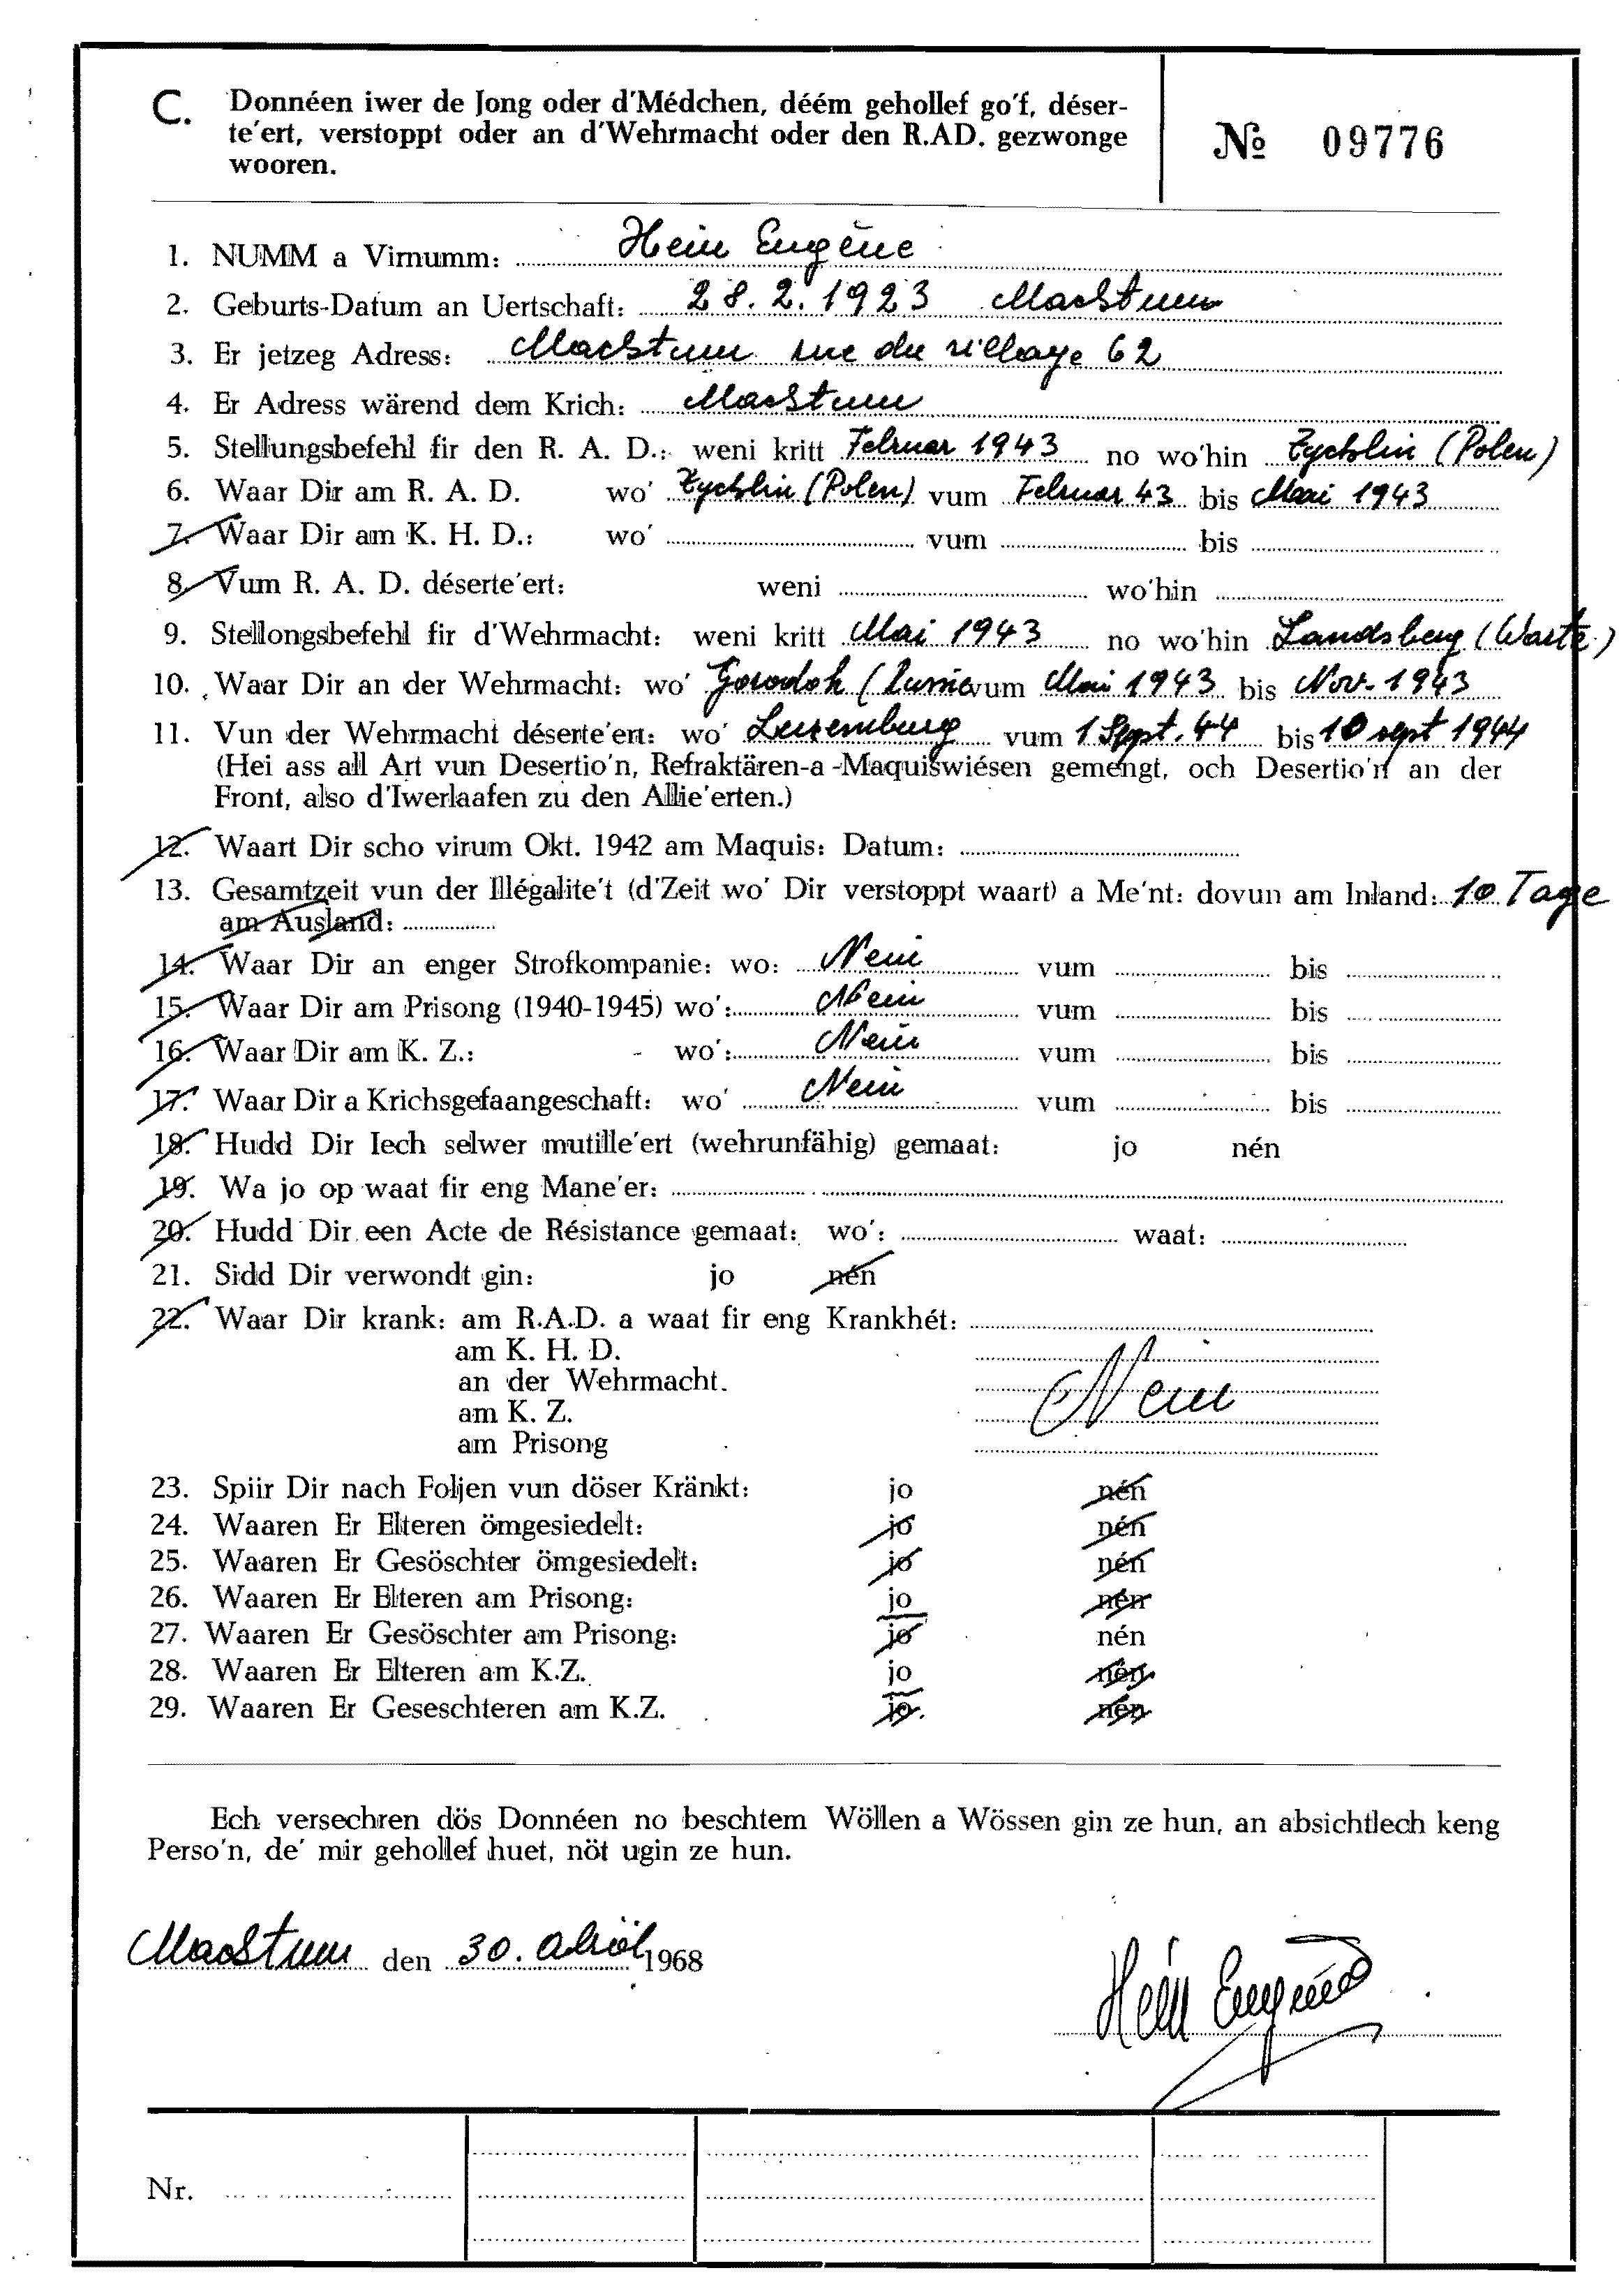 C. Donnéen iwer de Jong oder d'Médchen, déém gehollef go'f, déser-
te'ert, verstoppt oder an d'Wehrmacht oder den R.AD. gezwonge
wooren.
№ 09776
1. NUMM a Virnumm: Hein Eugène
2. Geburts-Datum an Uertschaft: 28.2.1923 Machtum
3. Er jetzeg Adress: Machtum rue du village 62
4. Er Adress wärend dem Krich: Machtum
5. Stellungsbefehl fir den R. A. D.: weni kritt Februar 1943 no wo'hin Zychlin (Polen)
6. Waar Dir am R. A. D. wo' Zychlin (Polen) vum Februar 43 bis Mai 1943
7. Waar Dir am K. H. D.: wo' vum bis
8. Vum R. A. D. déserte'ert: weni wo'hin
9. Stellongsbefehl fir d'Wehrmacht: weni kritt Mai 1943 no wo'hin Landsberg (Warte)
10. Waar Dir an der Wehrmacht: wo' Gorodok ( vum Mai 1943 bis Nov. 1943
11. Vun der Wehrmacht déserte'ert: wo' Luxemburg vum 1 Sept. 44 bis 10 sept 1944
(Hei ass all Art vun Desertio'n, Refraktären-a -Maquiswiésen gemengt, och Desertio'n an der
Front, also d'Iwerlaafen zu den Allie'erten.)
12. Waart Dir scho virum Okt. 1942 am Maquis: Datum:
13. Gesamtzeit vun der Illégalite't (d'Zeit wo' Dir verstoppt waart) a Me'nt: dovun am Inland: 10 Tage
am Ausland:
14. Waar Dir an enger Strofkompanie: wo: Nein vum bis
15. Waar Dir am Prisong (1940-1945) wo': Nein vum bis
16. Waar Dir am K. Z.: - wo': Nein vum bis
17. Waar Dir a Krichsgefaangeschaft: wo' Nein vum bis
18. Hudd Dir Iech selwer mutille'ert (wehrunfähig) gemaat: jo nén
19. Wa jo op waat fir eng Mane'er:
20. Hudd Dir een Acte de Résistance gemaat: wo': waat:
21. Sidd Dir verwondt gin: jo nén
22. Waar Dir krank: am R.A.D. a waat fir eng Krankhét:
am K. H. D.
an der Wehrmacht.
am K. Z. Nein
am Prisong
23. Spiir Dir nach Foljen vun döser Kränkt: jo nén
24. Waaren Er Elteren ömgesiedelt: jo nén
25. Waaren Er Gesöschter ömgesiedelt: jo nén
26. Waaren Er Elteren am Prisong: jo nén
27. Waaren Er Gesöschter am Prisong: jo nén
28. Waaren Er Elteren am K.Z. jo nén
29. Waaren Er Geseschteren am K.Z. jo. nén
Ech versechren dös Donnéen no beschtem Wöllen a Wössen gin ze hun, an absichtlech keng
Perso'n, de' mir gehollef huet, nöt ugin ze hun.
Machtum den 30. 1968
Hein Eugène
Nr.